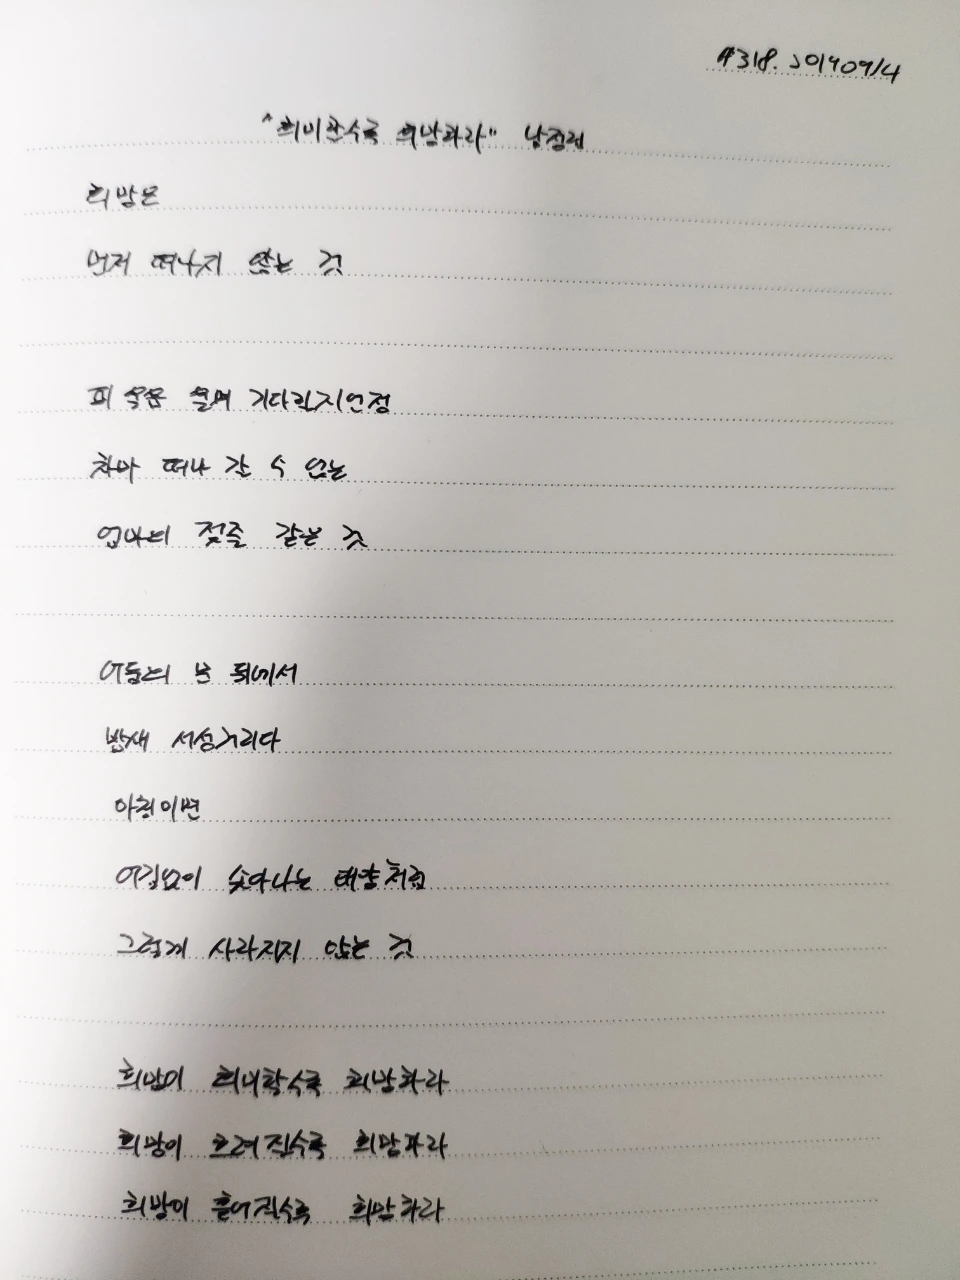 #318. 20190914
"희미할수록 희망하라" 남정림
희망은
먼저 떠나지 않는 것
피 울음 울며 기다릴지언정
차마 떠나 갈 수 없는
엄마의 젖줄 같은 것
어둠의 눈 뒤에서
밤새 서성거리다
아침이면
어김없이 솟아나는 태양처럼
그렇게 사라지지 않는 것
희망이 희미할수록 희망하라
희망이 흐려질수록 희망하라
희망이 흩어질수록 희망하라